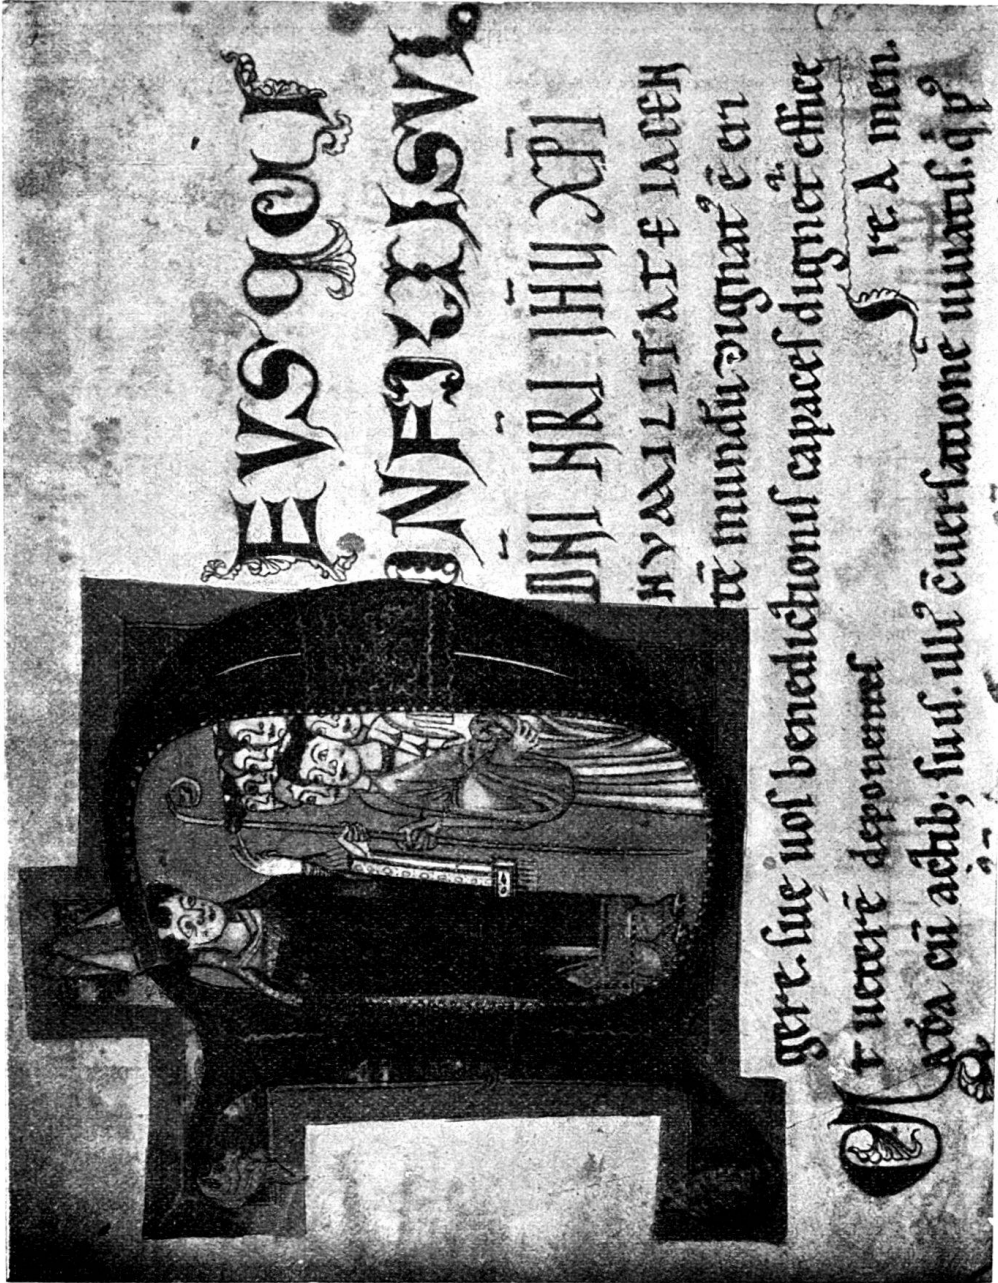 DEVS QVI
IN FILII SVI
DN̄I N̄RI IH̄V XP̄I
HVMILITATE IACEN
tē mundū dignatꝰ ē eri
gere. sue uos benedictionis capaces dignet᷑ effice
re. Amen.
Ut ueterē deponentes
adā cū actib; suis. illiꝰ c̄uersatione uiuatis. q̇